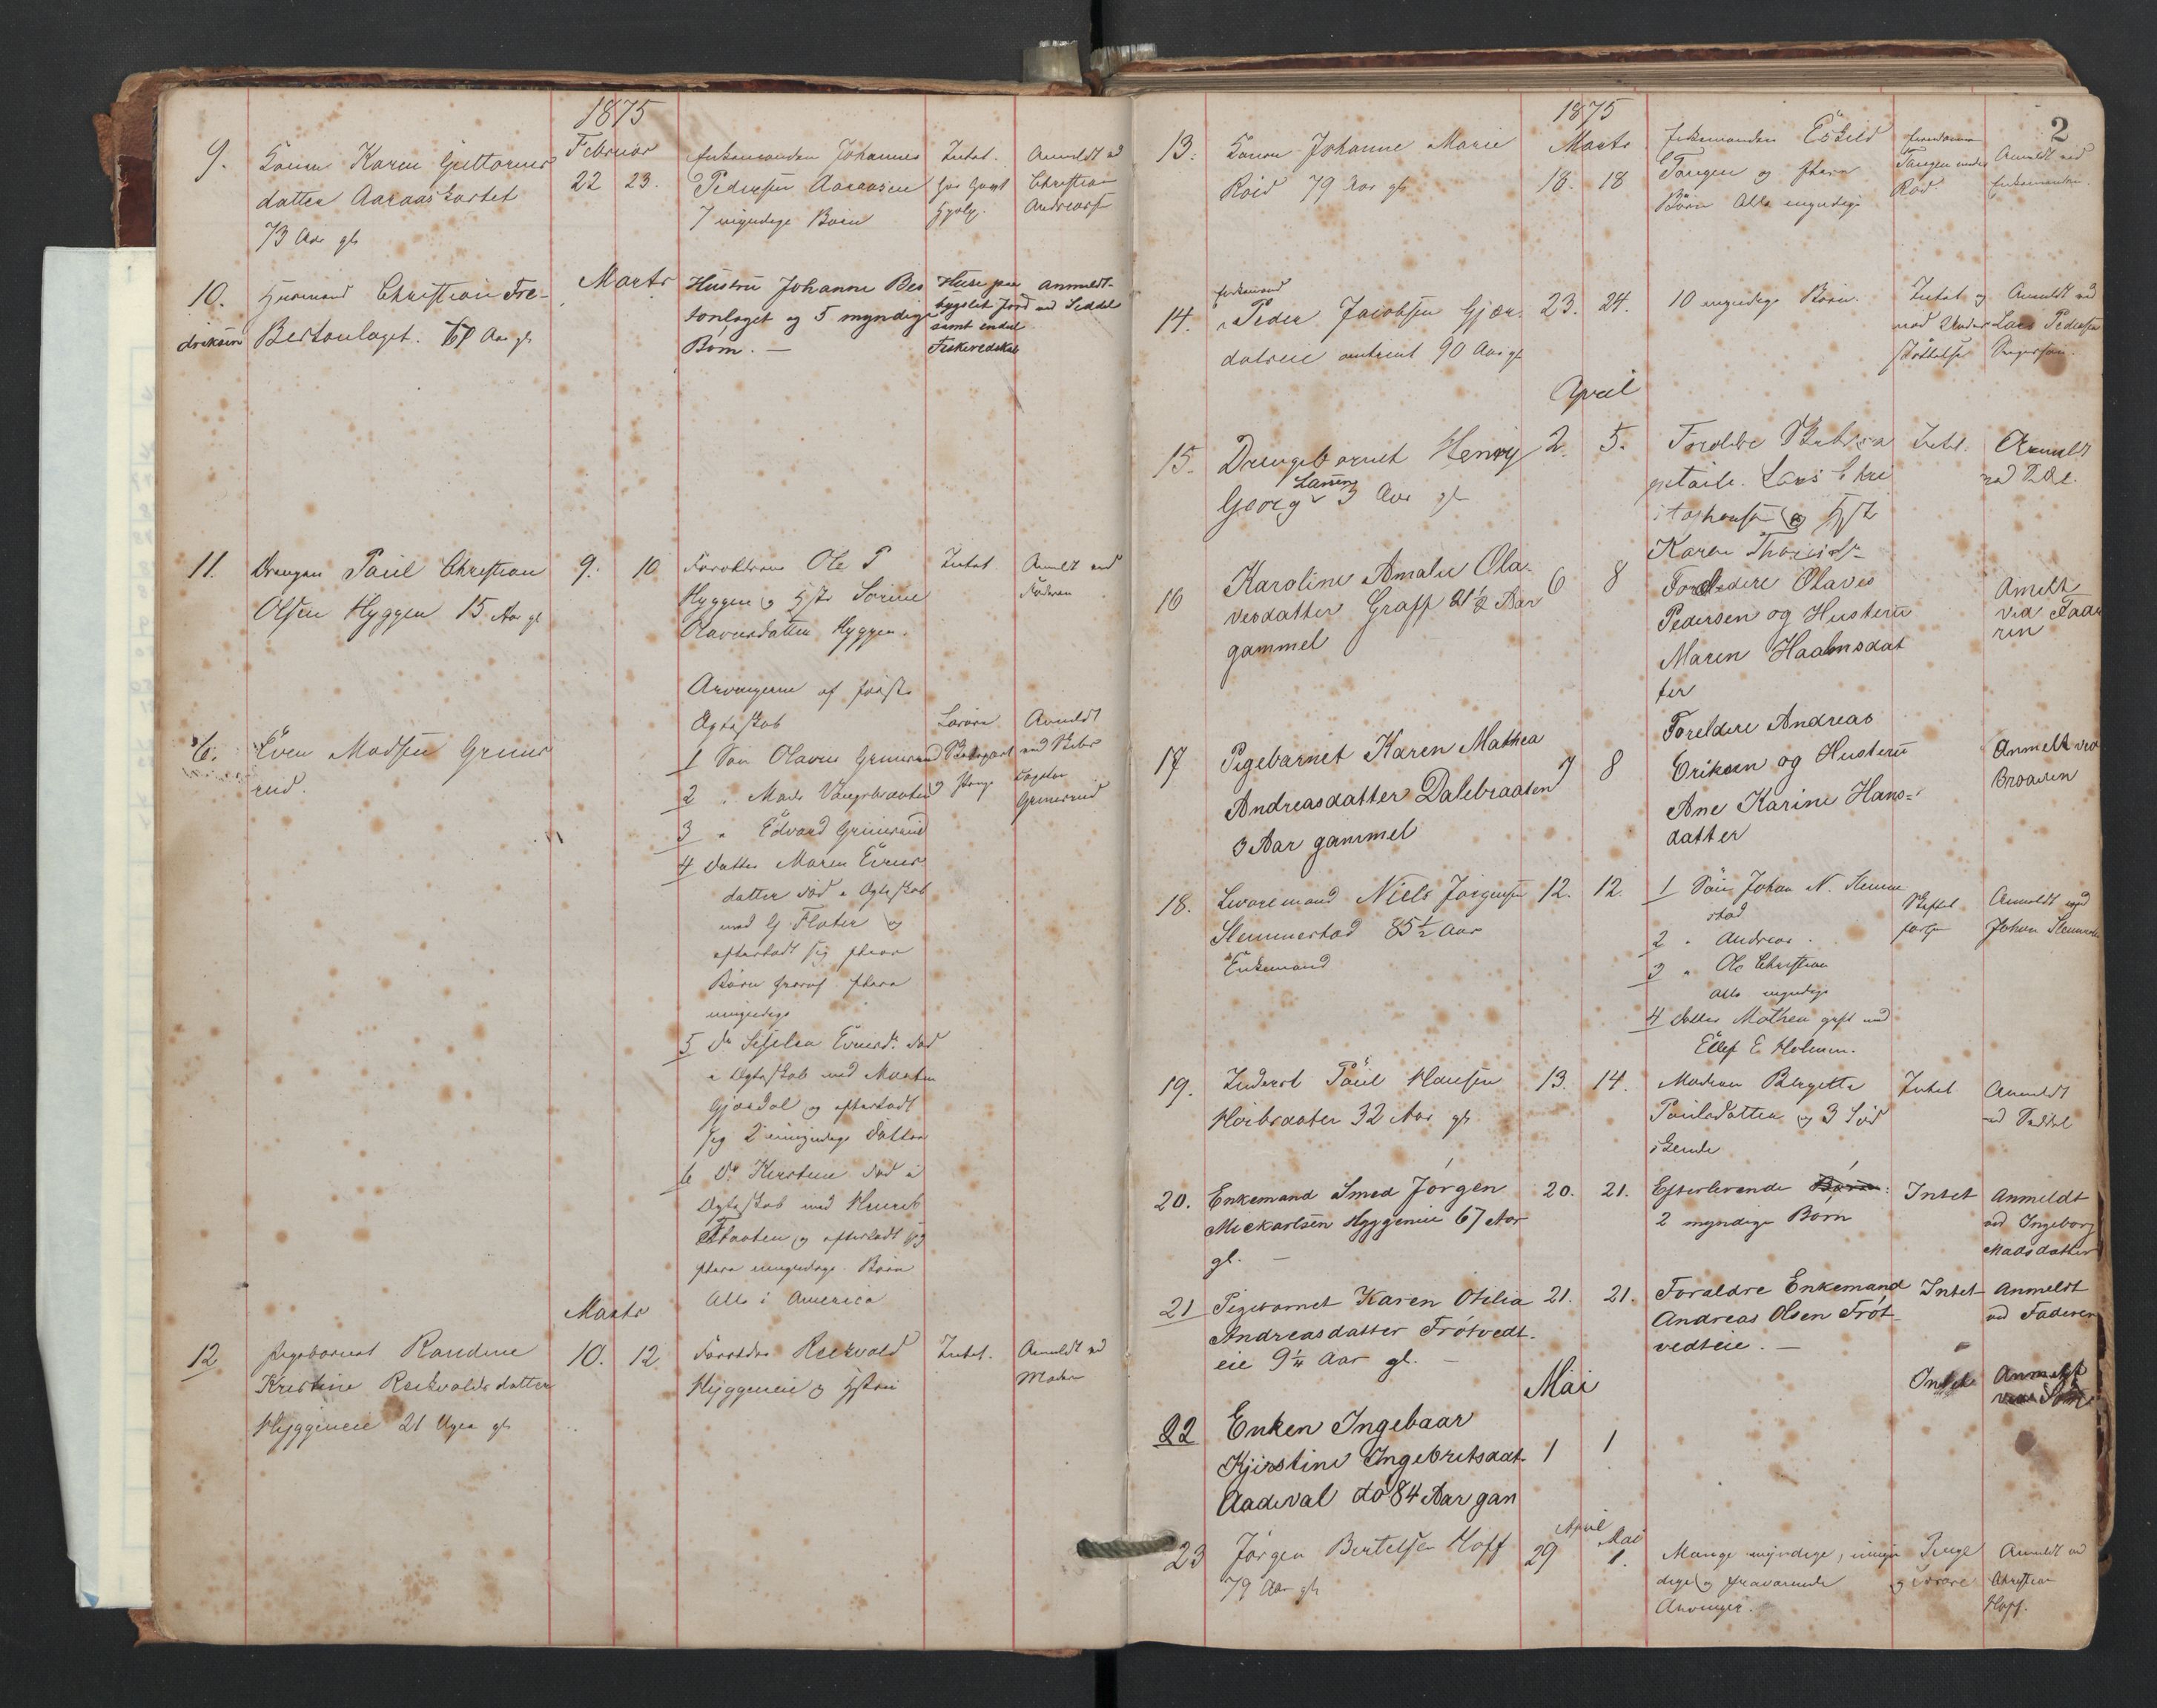 1875
Februar
9. Konen Karen Guttorms
datter Aaraaskortet
73 Aar gl
22 23.
Enkemanden Johannes
Pedersen Aaraasen
7 myndige Børn
Intet.
Anmeldt ved
Christian
Andreass
Marts
10. Husmand Christian Fre-
driksen Bertonlaget. 68 Aar gl
Hustru Johanne Ber
tonlaget og 5 myndige
Børn. —
Huse paa
bygslet Jord
samt endel
Fiskeredskab
Anmeldt
ved Seddel
11. Drengen Paul Christian
Olsen Hyggen 15 Aar gl
9. 10
Forældrene Ole P
Hyggen og Hst Sørine
Olavesdatter Hyggen.
Intet.
Anmeldt ved
Faderen
6. Even Madsen Grims
rud.
Arvingerne af første
Ægteskab
1 Søn Olavus Grimsrud
2 " Mads Vangsbraaten
3 " Edvard Grimsrud
4 Datter Maren Evens
datter død i Ægteskab
med G Floter og
efterladt sig flere
Børn hvoraf flere
umyndige
5 Dr Evensd. død
i Ægteskab med Morten
Gjerdal og efterladt
sig 2 umyndige Døttre
6 Dr Kirstine død i
Ægteskab med Henrik
Floten og efterladt sig
flere umyndige Børn
Alle i America
Løsøre
og Penge
Anmeldt
Grimsrud
Marts
12 Pigebarnet Randine
Kristine Reikvoldsdatter
Hyggeneie 21 Uger gl
10. 12
Forældre Reikvold
Hyggeneie og Hustru
Intet.
Anmeldt ved
Moder
2
1875
Marts
13. Konen Johanne Marie
Røid 79 Aar gl
18. 18
Enkemanden Eskild
Tangen og flere
Børn Alle myndige
Tangen under
Rød
Anmeldt ved
Enkemanden.
14. Enkemand
Peder Jacobsen Gjær-
dalseie omtrent 90 Aar gl
23. 24.
10 myndige Børn.
Intet og
nød Under
støttelse
Anmeldt ved
Lars Pedersen
April
15. Drengebarnet Henry
Georg Larsen 3 Aar gl
2. 5.
Forældre Skibsca
pitain. Lars Chri
stophersen og Hst
Karen
Intet.
Anmeldt
ved Seddel.
16 Karoline Amalie Ola-
vesdatter Graff 21½ Aar
gammel
6 8
Foreldere Olaves
Pedersen og Husteru
Maren Haakensdat
ter
Anmelt
ved Fade
ren
17 Pigebarnet Karen Mathea
Andreasdatter Dalebraaten
3 Aar gammel
7 8
Foreldere Andreas
Eriksen og Husteru
Ane Karine Hans-
datter
Anmelt ved
Broderen
18. Levaremand Niels Jørgensen
Slemmestad 85½ Aar
Enkemand
12. 12.
1 Søn Johan N. Slemme
stad
2 " Andreas.
3 " Ole Christian
Alle myndige
4 Datter Mathea gift med
Ellef E Holmen.
Anmeldt ved
Johan Slemmes
19. Inderst Paul Hansen
Høibraaten 32 Aar gl
13. 14.
Moderen Birgitte
Poulsdatter og 3 Sød
skende
Intet
Anmeldt
ved Seddel
20. Enkemand Smed Jørgen
Mickaelsen Hyggenie 67 Aar
gl. —
20. 21.
Efterlevende Børn:
2 myndige Børn
Intet
Anmeldt
ved Ingeborg
Madsdatter
21 Pigebarnet Karen Otelia
Andreasdatter Frøtvedt-
eie 9¼ Aar gl. —
21. 21.
Foraldre Enkemand
Andreas Olsen Frøt-
vedteie. —
Intet
Anmeldt
ved Faderen
Mai
22 Enken Ingebaar
Kjirstine Ingebretsdat-
Aadeval dø 84 Aar gam
1 1
Intet
Anmelt
ved Søn
23 Jørgen Bertelsen Hoff
79 Aar gl
April Mai
29 1.
Mange myndige, umyn
dige og fraværende
Arvinger.
Penge
og Løsøre
Anmeldt ved
Christian
Hoff.